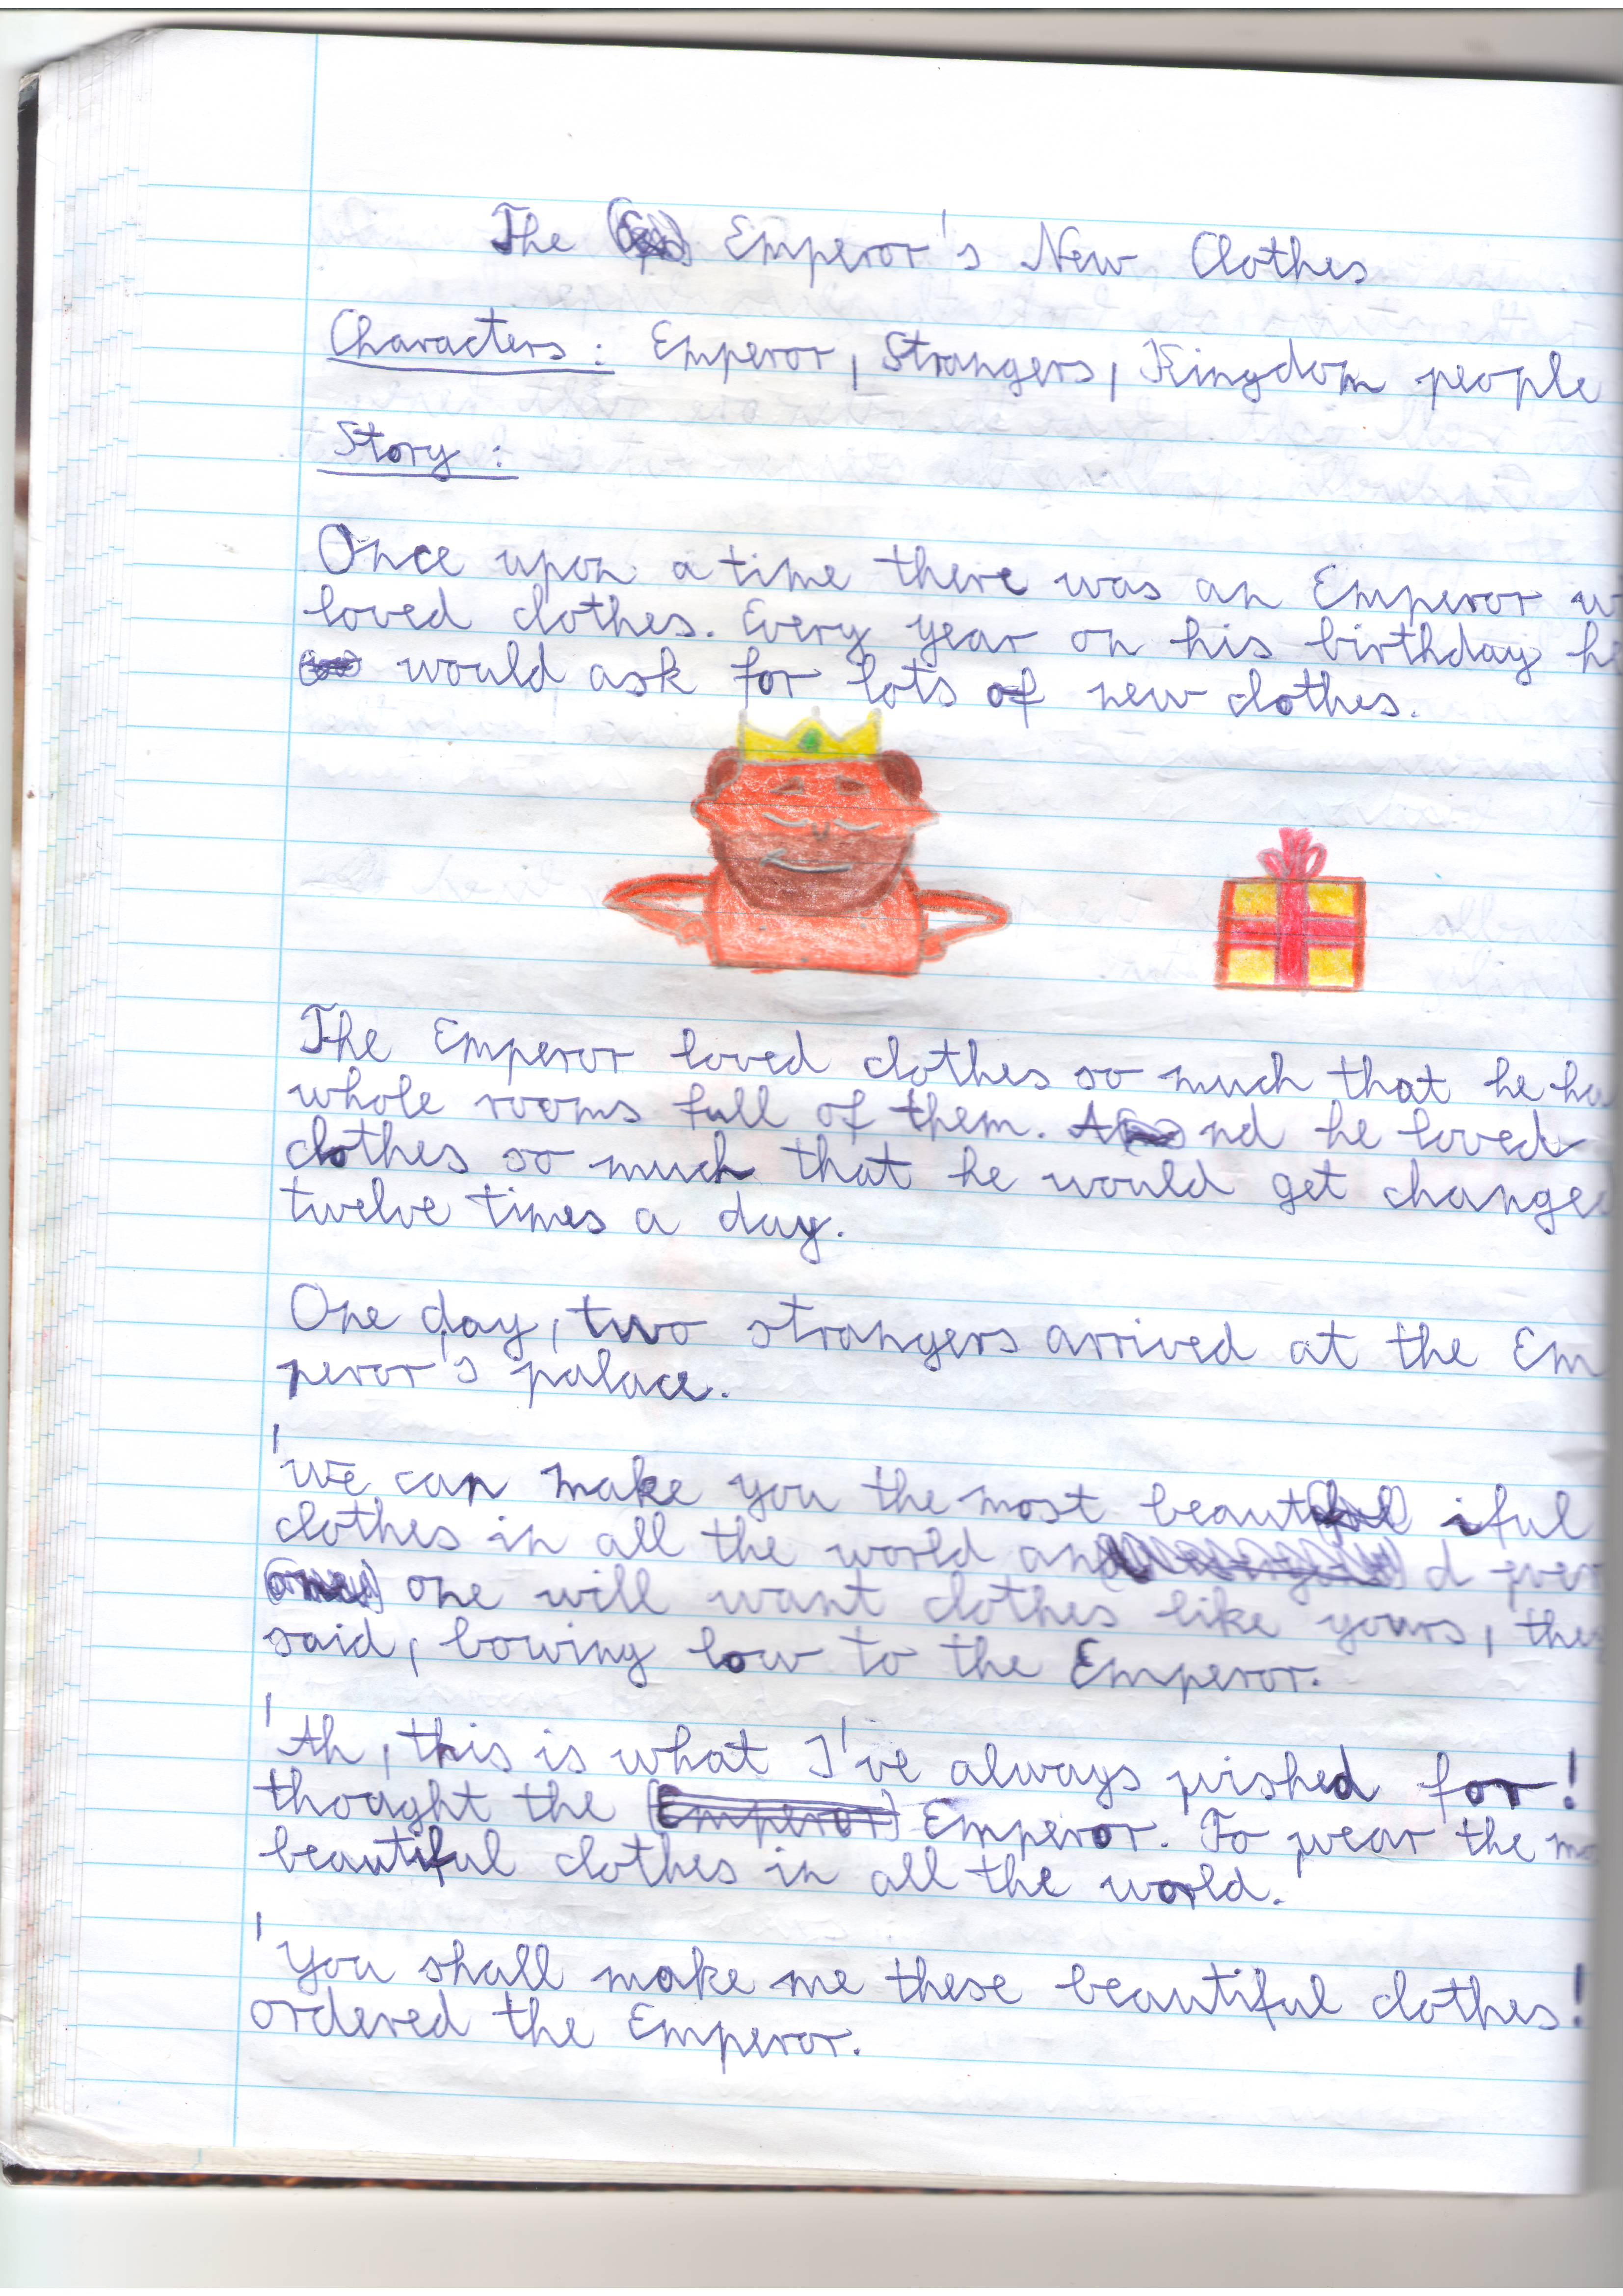 The Emperor's New Clothes
Characters: Emperor, Strangers, Kingdom people
Story:
Once upon a time there was an Emperor w
loved clothes. Every year on his birthday h
would ask for lots of new clothes.
The Emperor loved clothes so much that he ha
whole rooms full of them. And he loved
clothes so much that he would get change
twelve times a day.
One day, two strangers arrived at the Em
peror's palace.
'We can make you the most beautiful
clothes in all the world and
one will want clothes like yours, the
said, bowing low to the Emperor.
'Ah, this is what I've always wished for!
thought the Emperor Emperor. To wear the mo
beautiful clothes in all the world.
'You shall make me these beautiful clothes!
ordered the Emperor.